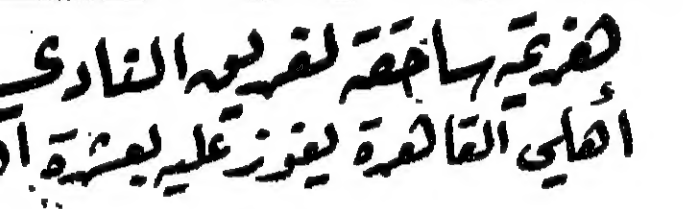 هزيمة ساحقة لفريق النادي
أهلي القاهرة يفوز عليه بعشرة